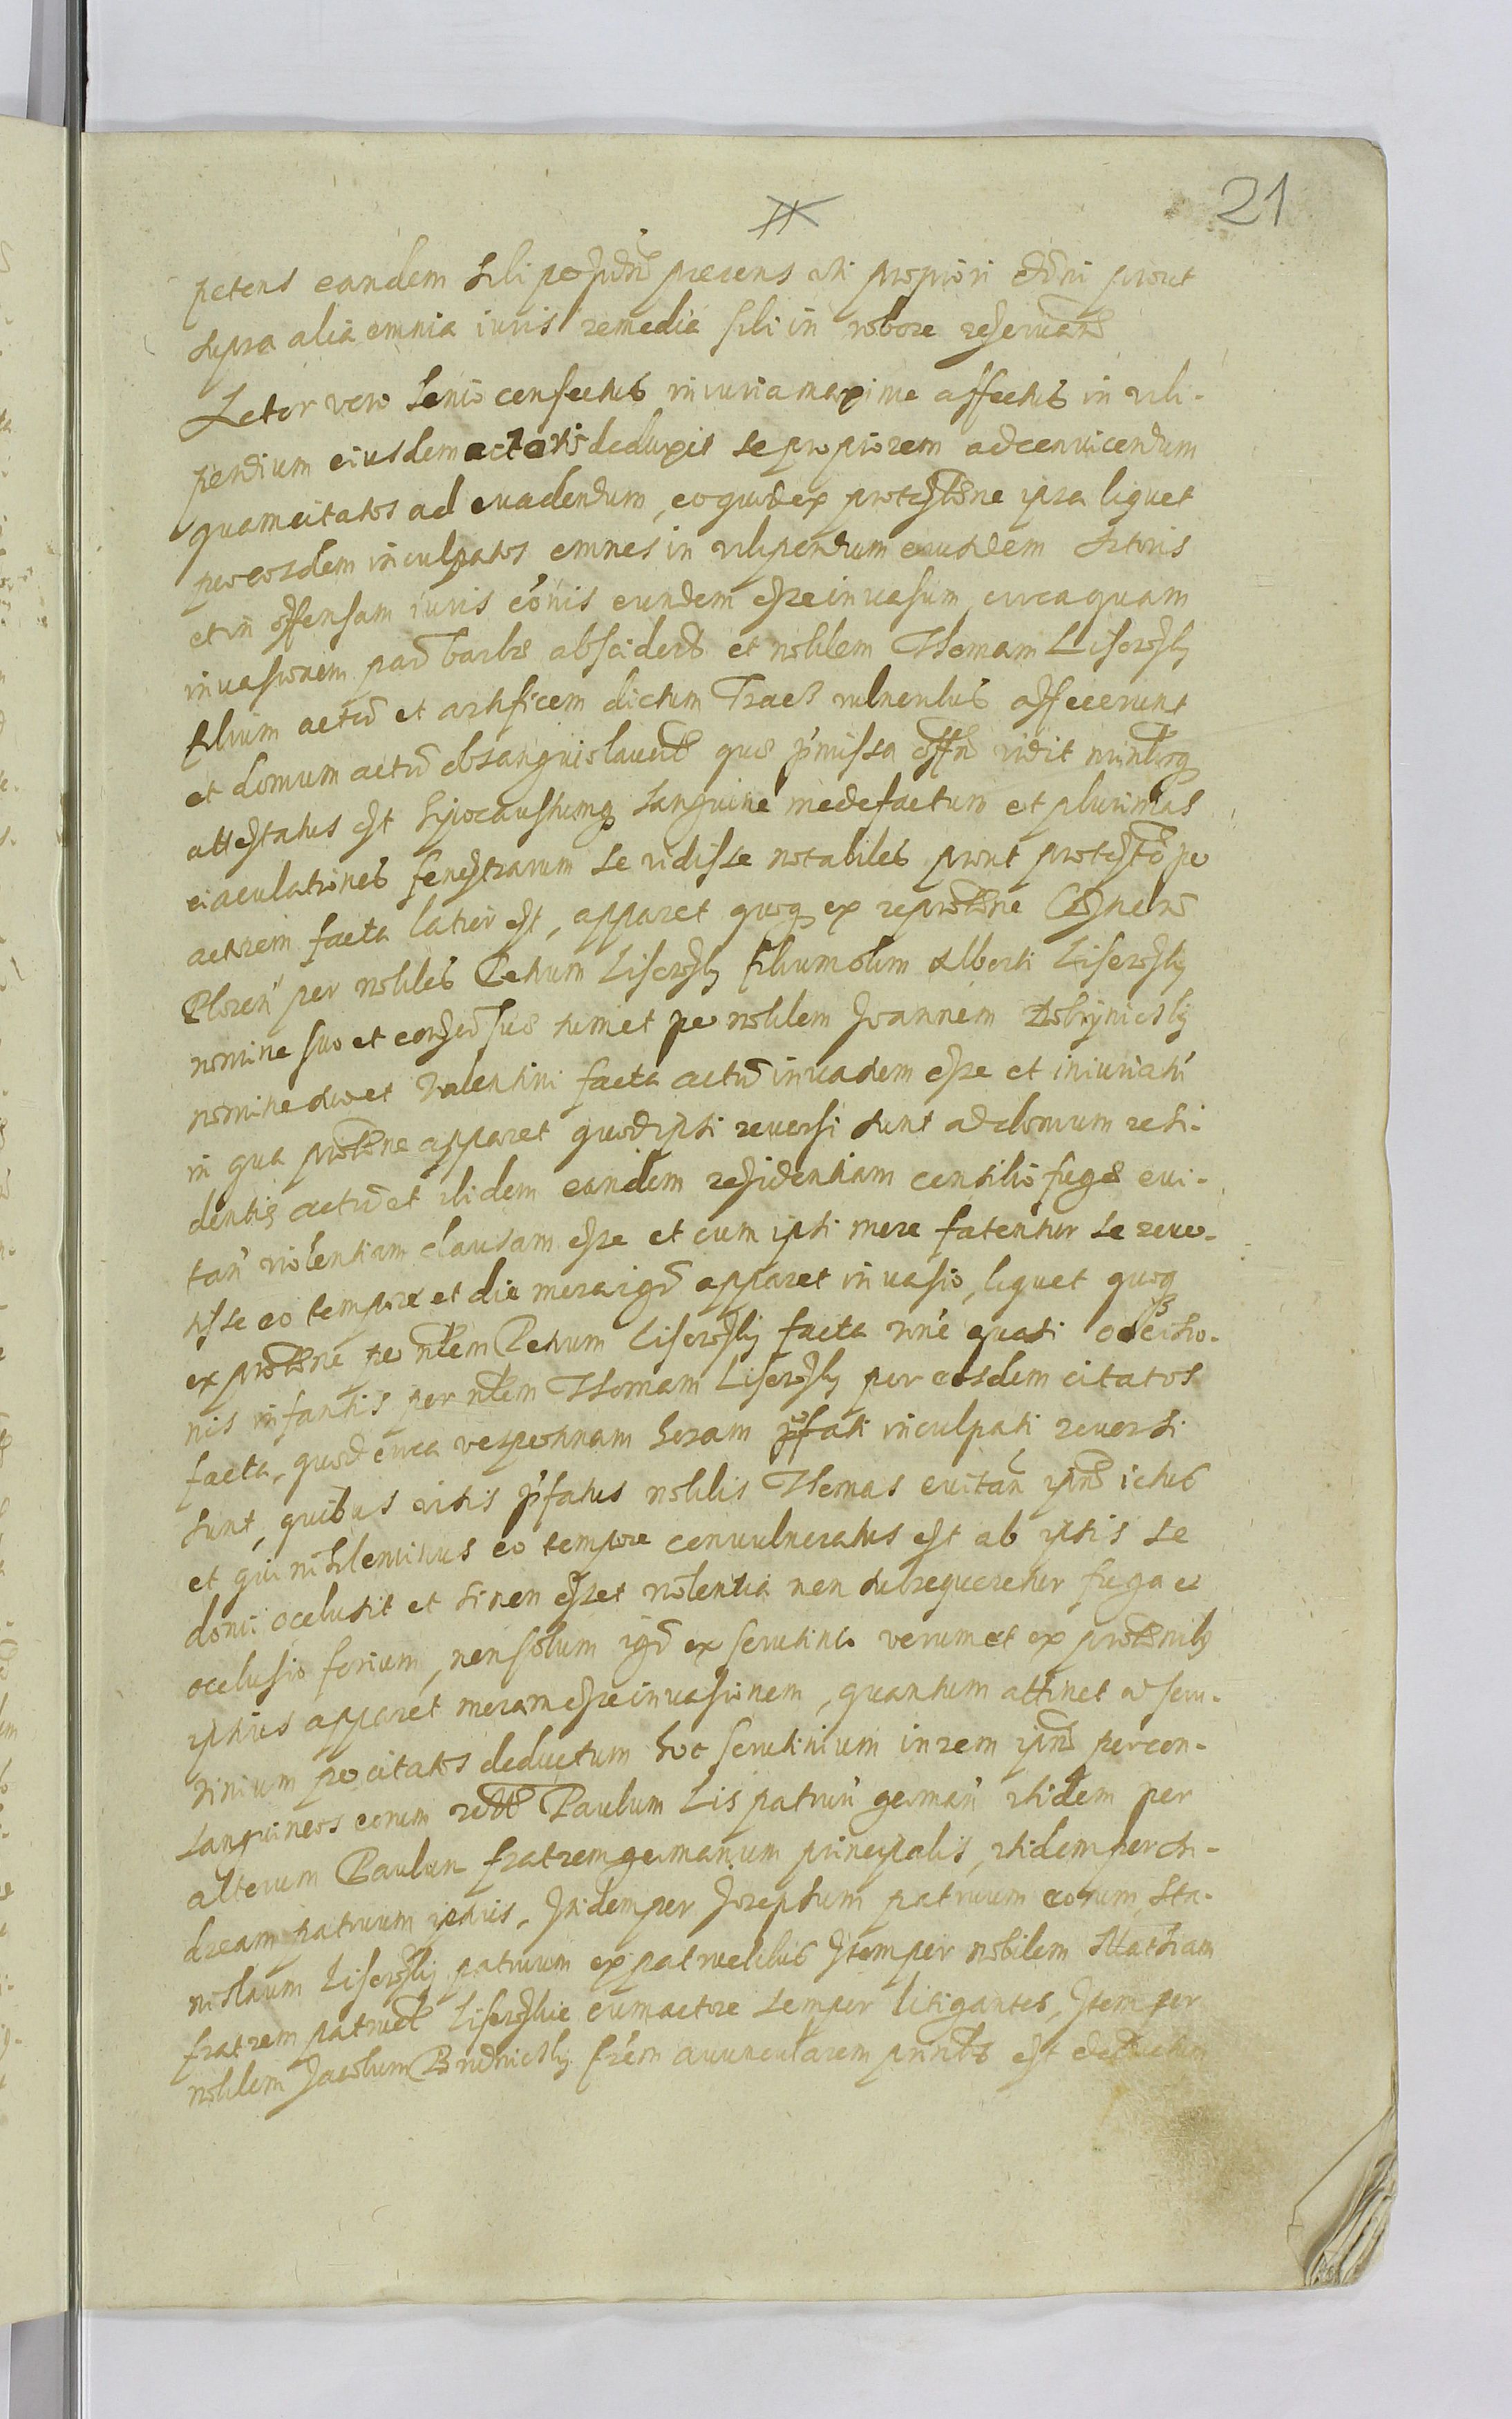 21
petens eandem sibi per Judm præsens uti propriori Ordni prout
supra alia omnia iuris remedia sibi in robore reservans
Actor vero senio confectus iniuria maxime affectus in vili-
pendium eiusdem actoris deduxit se propiorem ad convincendum
quam citatos ad evadendum, eo quod ex protestõne ipsa liquet
per eosdem inculpatos omnes in vilipendium eiusdem Actoris
et in offensam iuris cõnis eundem esse invasum, circa quam
invasionem part barbæ absciderũt et nobilem Thomam Lisowsky
filium actoris et artificem dictum Tracz vulneribus affecerunt
et domum actoris obsanguislaverũt quæ p'missa offm vidit ministq
attestatus est Hypocaustumq sanguine medefactum et plurimas
eiaculationes fenestrarum se vidisse notabiles prout protestõ per
actorem facta latior est, apparet quoq ex reprotõne
Plocen' per nobiles Petrum Lisowsky filium olim Alberti Lisowsky
nomine suo et suæ tum et per nobilem Joannem Dobrynicsky
nomine suo et Valentini facta actorem invasum esse et iniuriatũ
in qua protõne apparet quod ipsi reversi sunt ad domum resi-
dentiæ actoris et ibidem eandem residentiam consilio fugæ evi-
tan' violentiam clausam esse et cum ipsi mere fatentur se rever-
tisse eo tempore et die mera igr apparet invasio, liquet quoq
ex protõne per nblem Petrum Lisowsky facta rõne quasi occisio-
nis infantis per nblem Thomam Lisowsky per eosdem citatos
facta, quod circa vespertinam horam p'fati inculpati reversi
sunt, quibus visis p'fatus nobilis Thomas evitan' ipsorũ ictus
et qui nihilominus eo tempore convulneratus est ab ipsis se
domi oclusit et si non esset violentia non subsequeretur fuga et
oclusio forium, non solum igr ex scrutinio verum et ex protõnibus
ipsius apparet meram esse invasionem, quantum attinet ad scru-
tinium per citatos deductum hoc scrutinium in rem ipsorũ per con-
sanguineos eorum Paulum Lis patruũ germanũ itidem per
alterum Paulum fratrem germanum principalis, itidem per An-
dream patruum ipsius, Itidem per Josephum patruum eorum, Sta-
nislaum Lisowsky patruum ex patruelibus Item per nobilem Mathiam
fratrem patruel Lisowskie cum actore semper litigantes, Item per
nobilem Jacobum Brudnicsky fr'em avuncularem est deductum